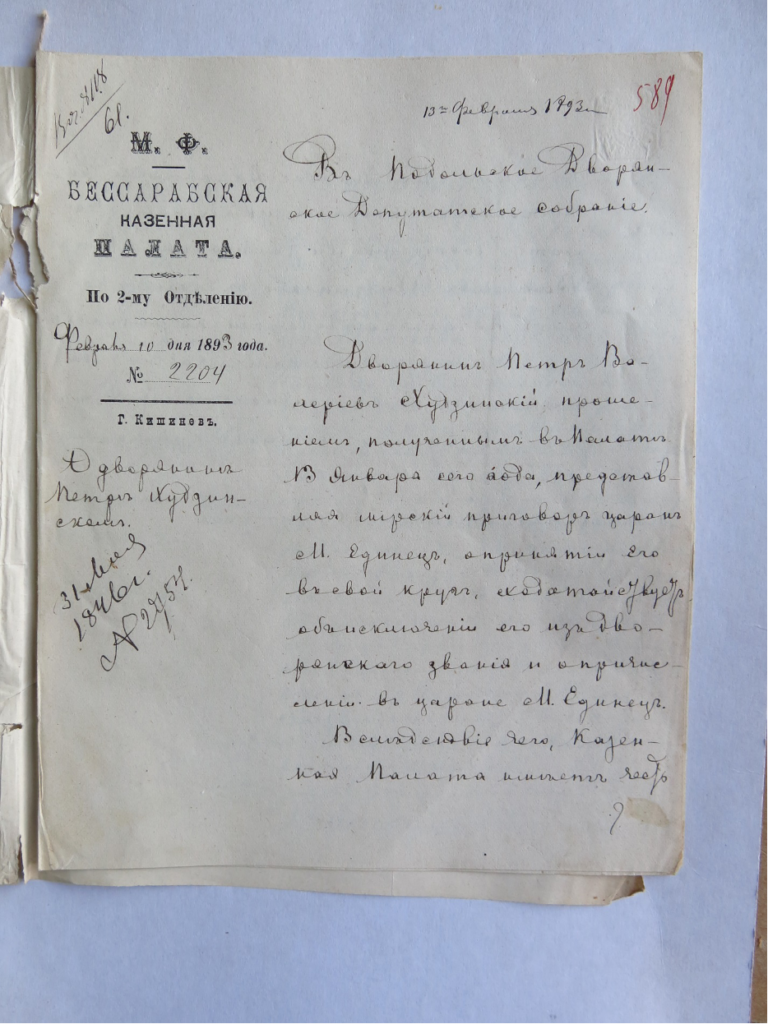 13го февраля 1893 г.
589
61.
М. Ф.
БЕССАРАБСКАЯ
КАЗЕННАЯ
ПАЛАТА.
По 2-му Отдѣленію.
Февраля 10 дня 1893 года.
№ 2204
Г. Кишиневъ.
О дворянинѣ
Петрѣ Худзин-
скомъ.
№ 2754.
Въ Подольское Дворян-
ское Депутатское собраніе.
Дворянинъ Петръ Ва-
леріевъ Худзинскій проше-
ніемъ, полученнымъ въ Палатѣ
13 января сего года, представ-
ляя мірскій приговоръ царанъ
М. Единецъ, о принятіи его
въ свой кругъ, ходатайствуетъ
объ исключеніи его изъ дво-
рянскаго званія и о причис-
леніи въ царане М. Единецъ.
Вслѣдствіе чего, Казен-
ная Палата имѣетъ честь